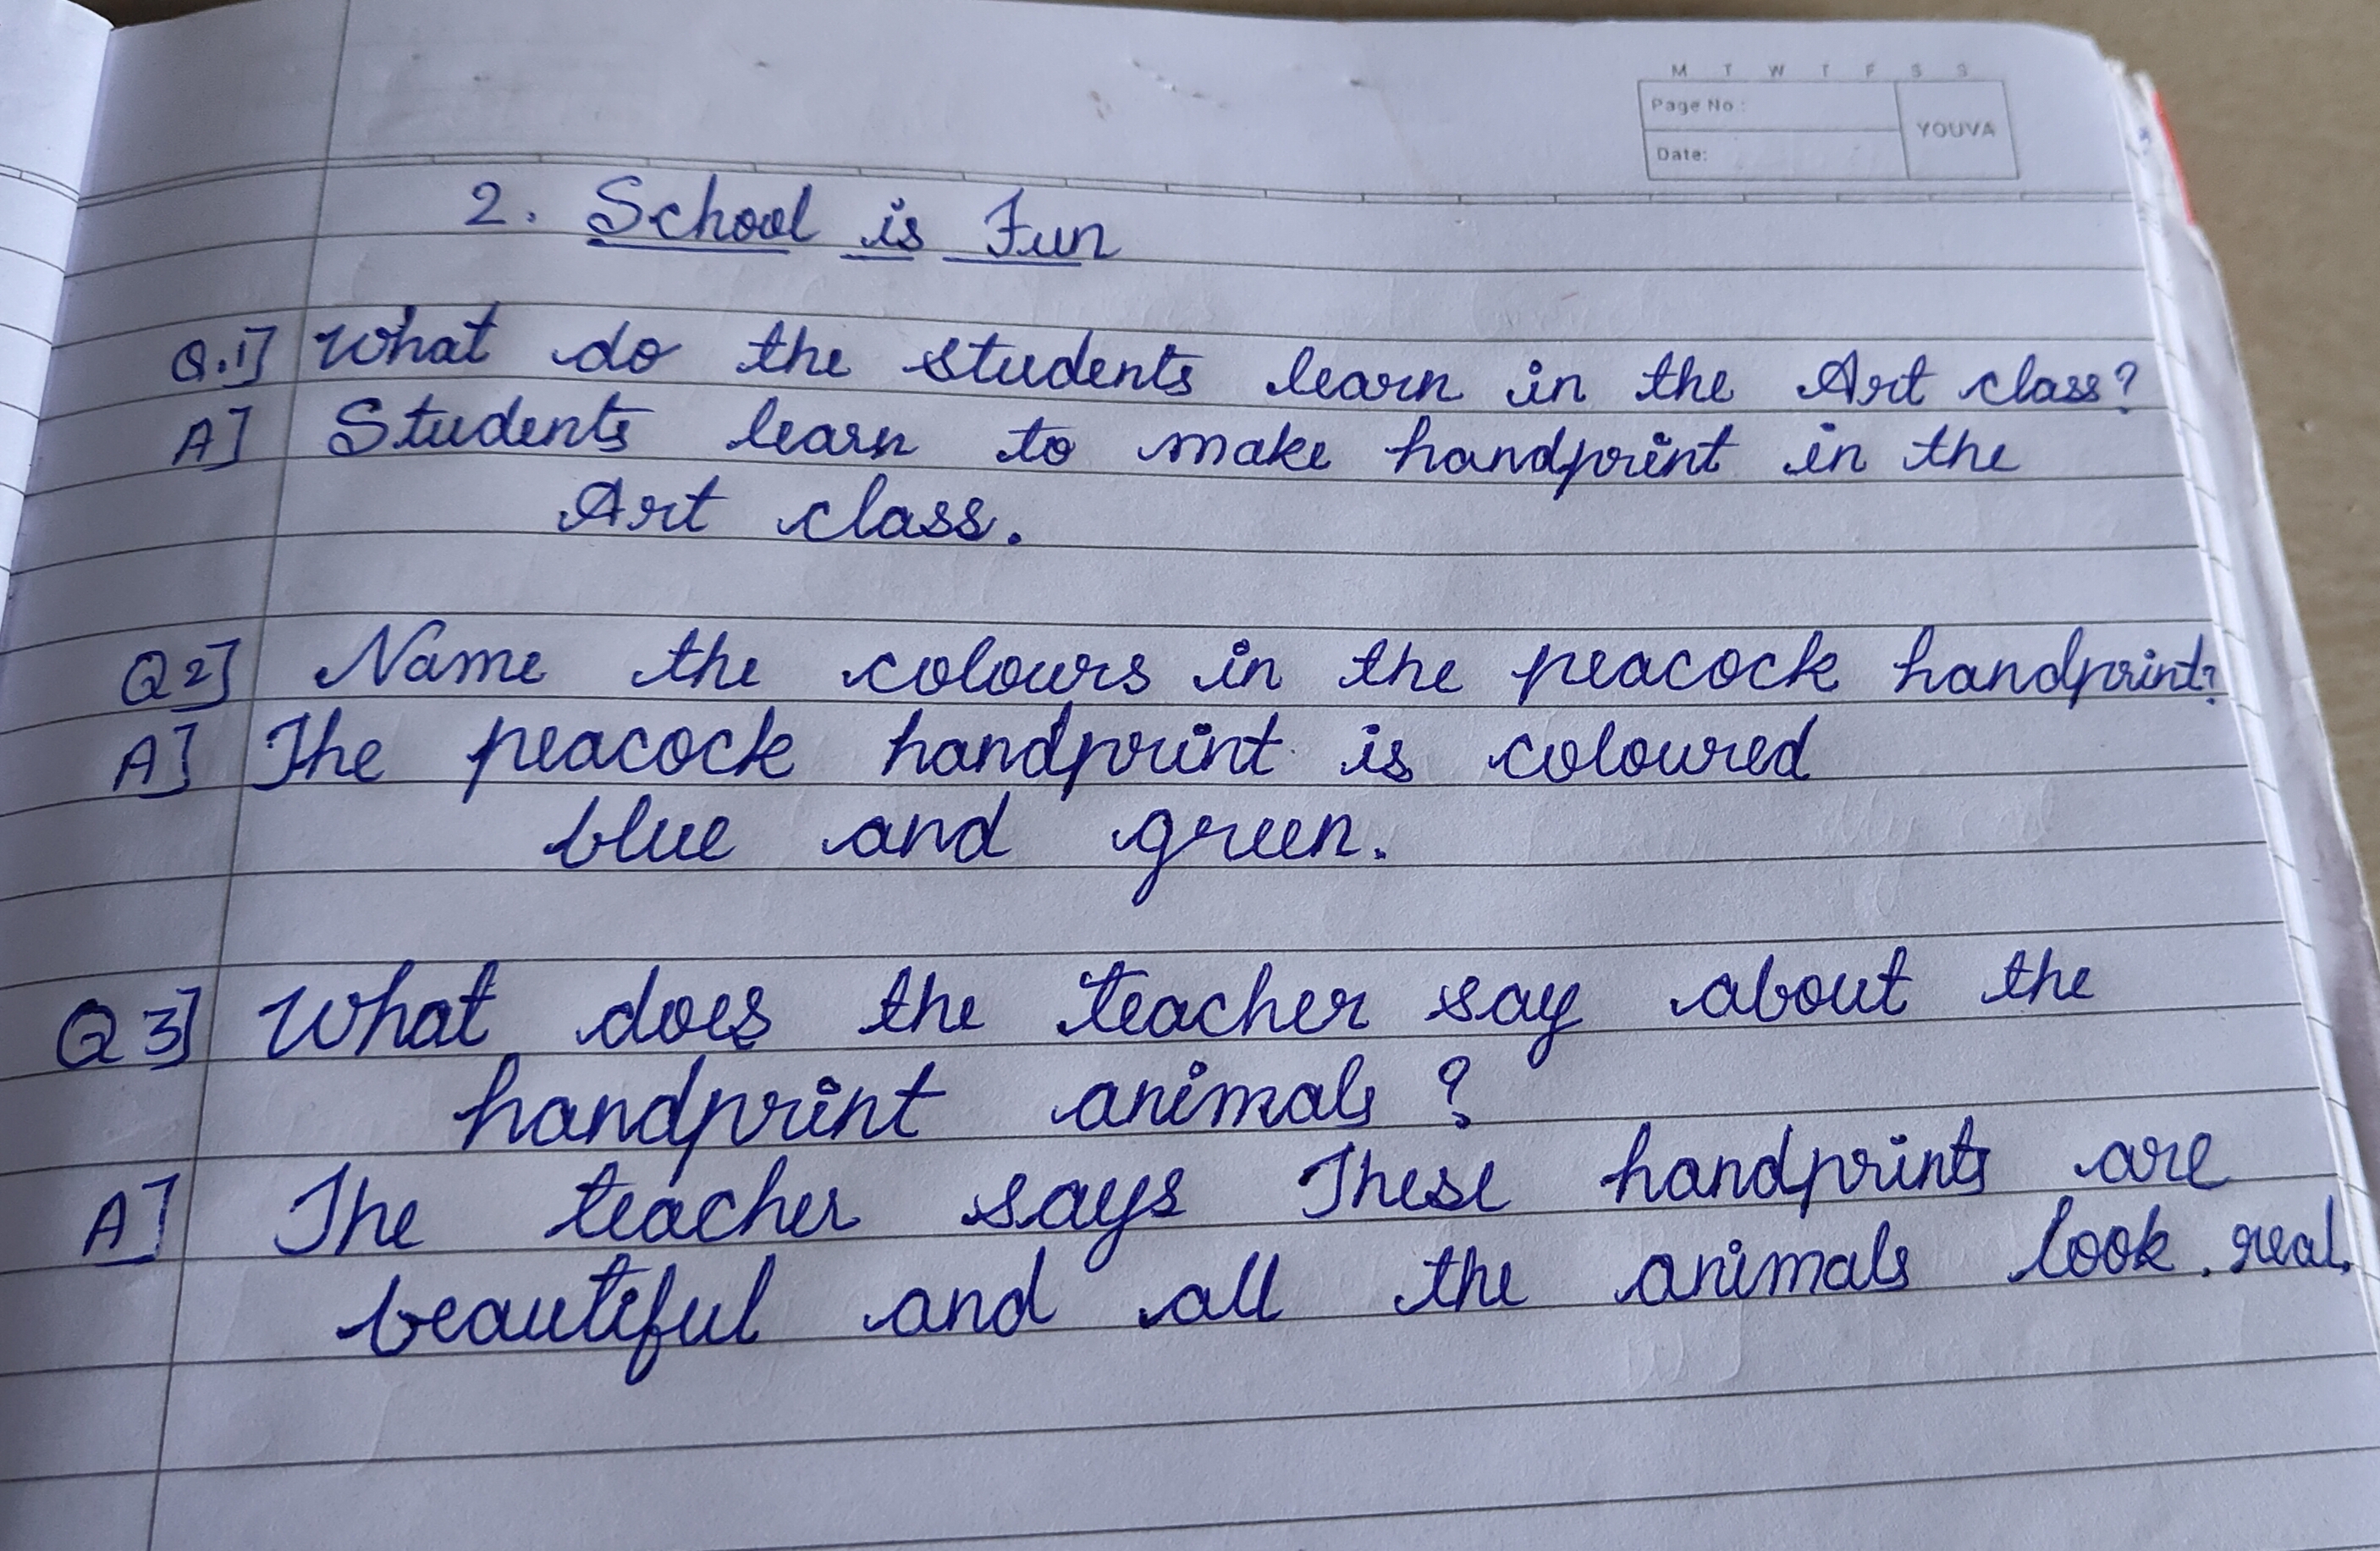 M T W T F S S
Page No :
YOUVA
Date:
2. School is Fun
Q.1] What do the students learn in the Art class?
A] Students learn to make handprint in the
Art class.
Q2] Name the colours in the peacock handprint?
A] The peacock handprint is coloured
blue and green.
Q3] What does the teacher say about the
handprint animals ?
A] The teacher says These handprints are
beautiful and all the animals look real.